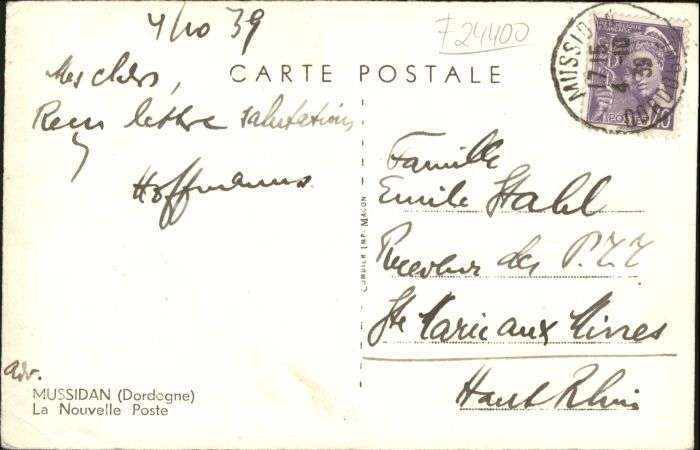 4/10 39
724400
CARTE POSTALE
Mes chers,
Reçu lettre salutations
Hoffmanns.
MUSSIDAN
17 15
4-10
39
DORDOGNE
POSTES
40
Famille
Emile Stahl
Receveur des P.T.T
Ste Marie aux Mines
Haut Rhin
COMBIER IMP. MACON
adv.
MUSSIDAN (Dordogne)
La Nouvelle Poste